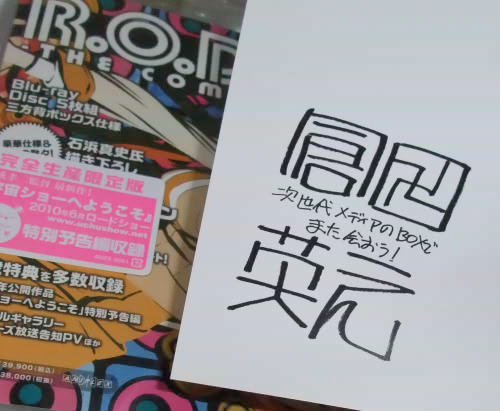 R.O.D
THE COM
Blu-ray
Disc 5枚組
三方背ボックス仕様
豪華仕様&
石浜真史氏
描き下ろし
完全生産限定版
宙ショーへようこそ』
2010年6月ロードショー
www.uchushow.net
特別予告編収録
特典を多数収録
年公開作品
ショーへようこそ」特別予告編
ルギャラリー
ーズ放送告知PVほか
39,900(税込)
38,000(税抜)
ANIPLEX
倉田
次世代メディアのBOXで
また会おう!
英之